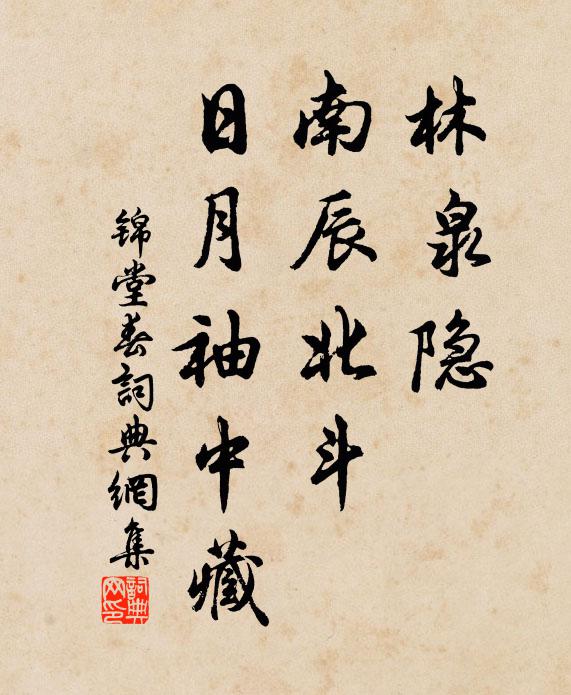 林泉隐
南辰北斗
日月袖中藏
锦堂春詞典網集
詞典
网印